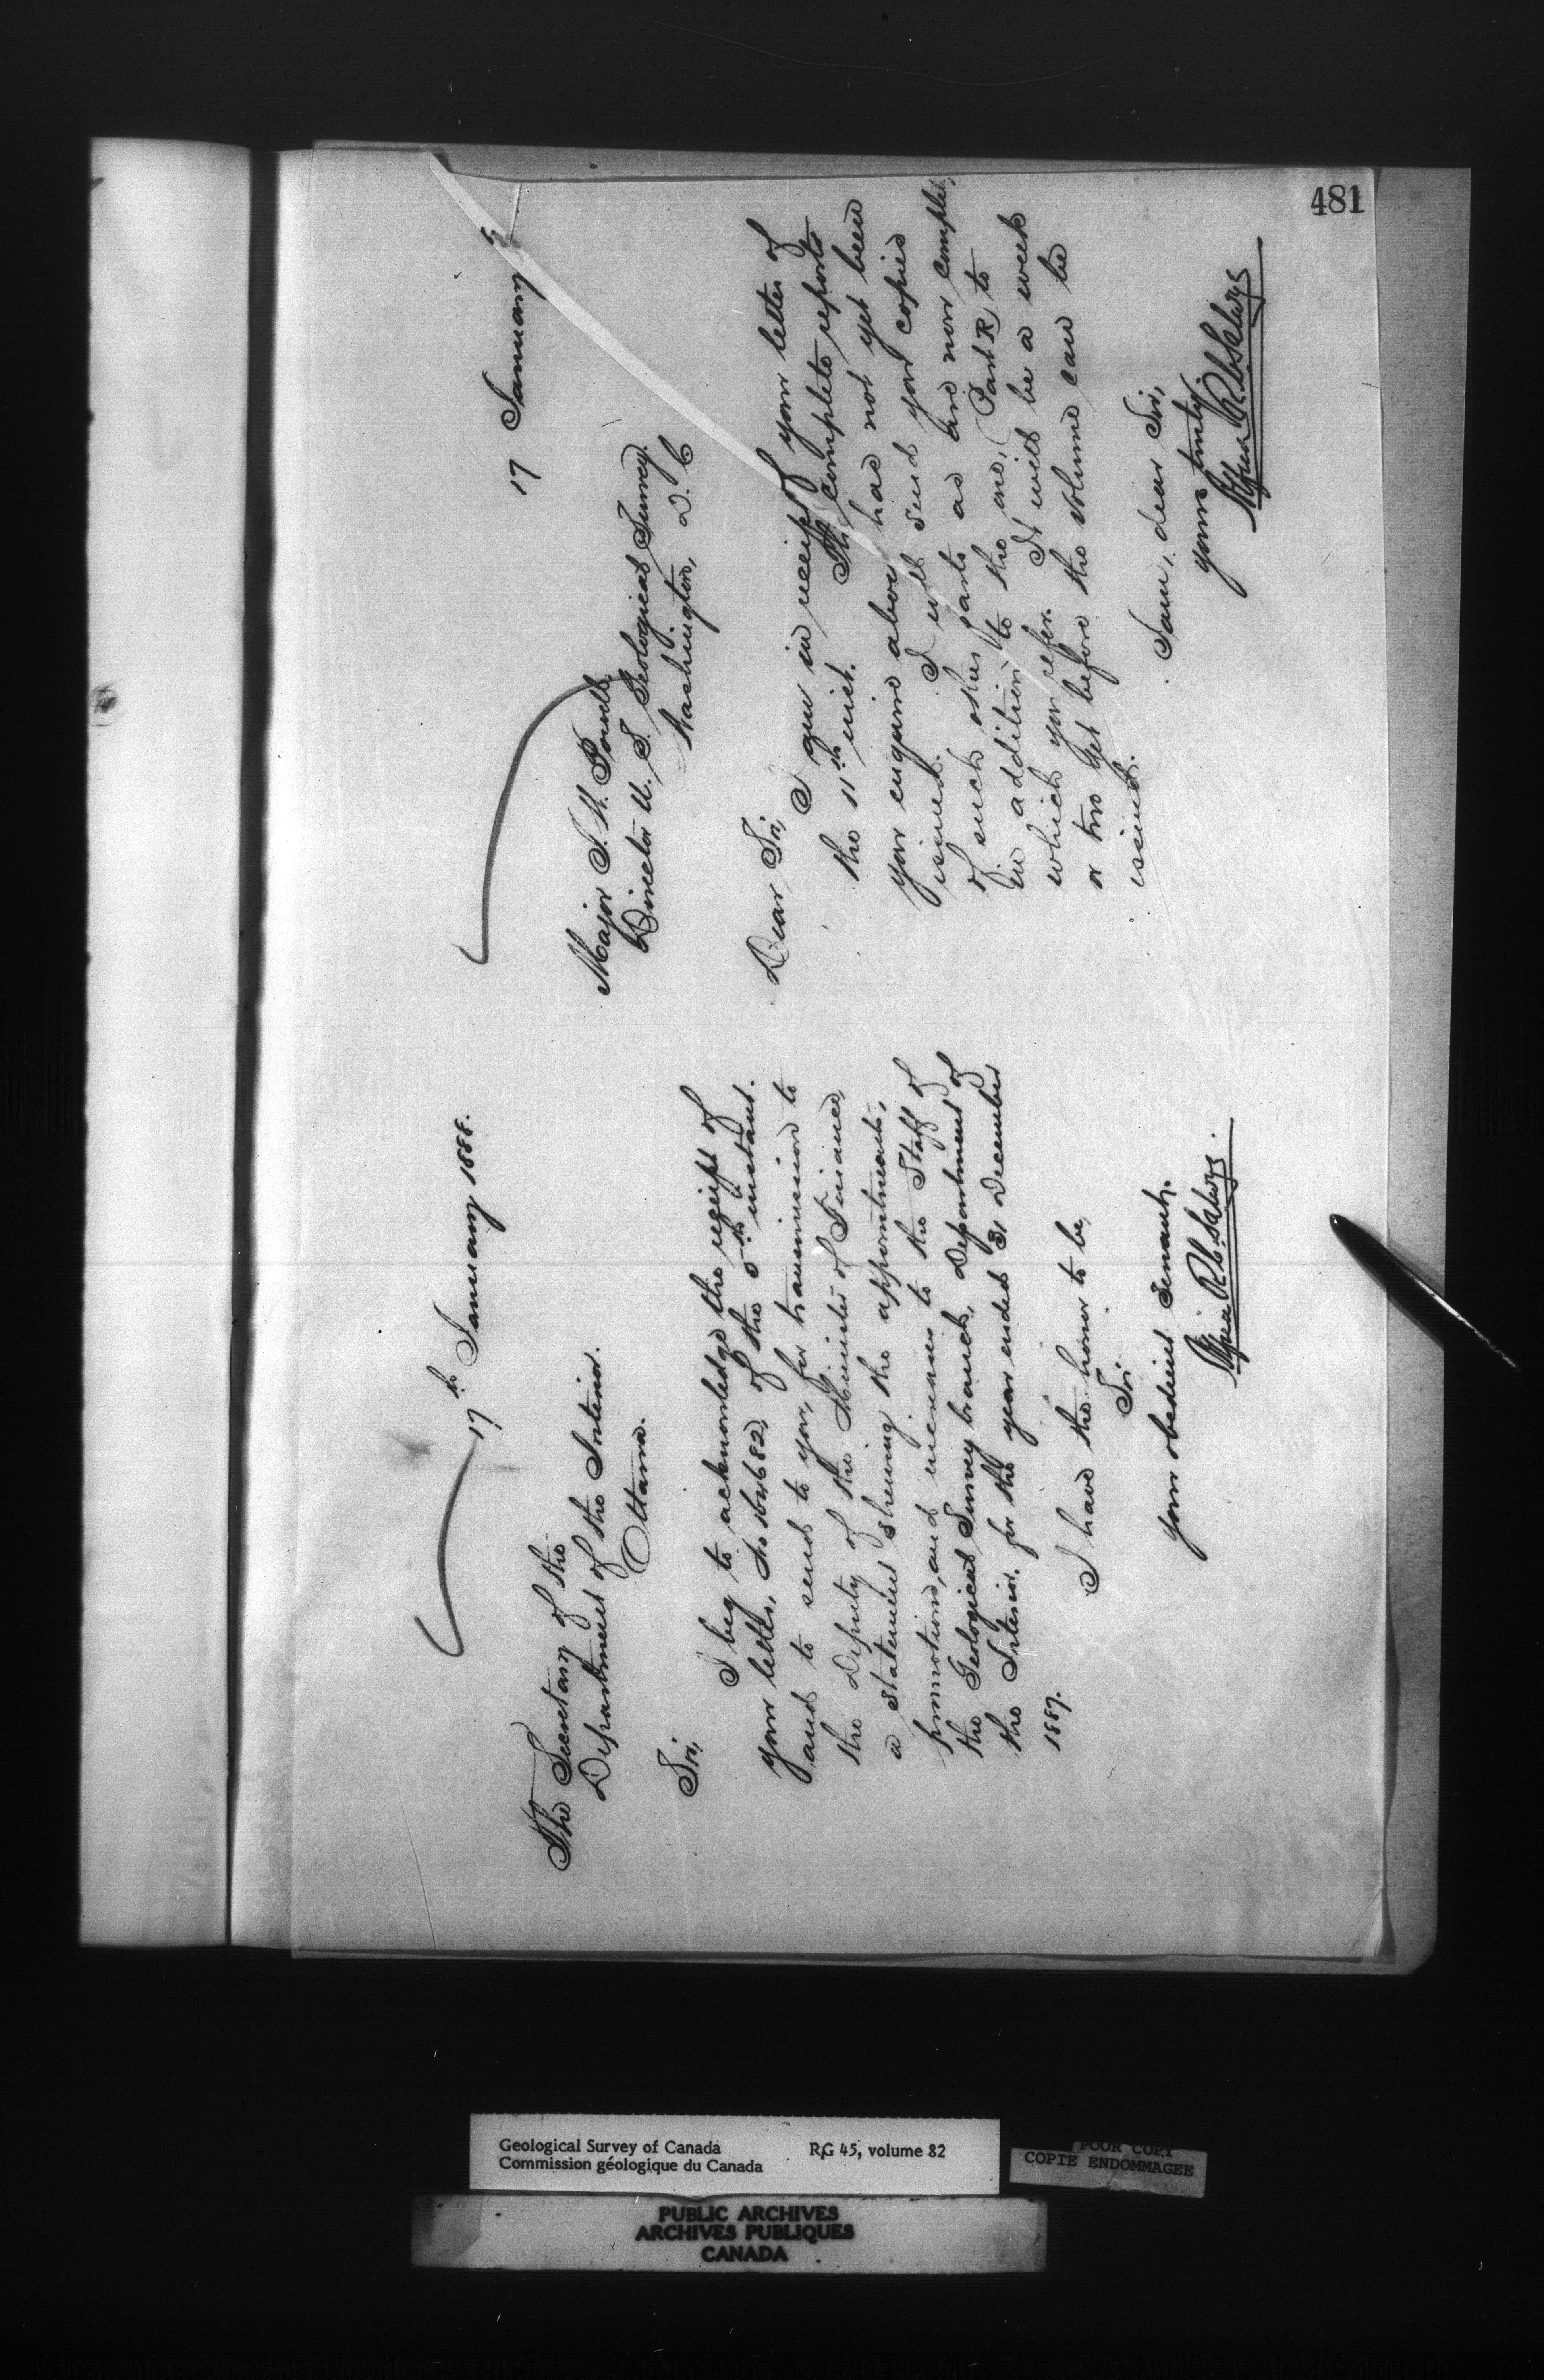 481
17th January 1888.
The Secretary of the
Department of the Interior.
Ottawa.
Sir,
I beg to acknowledge the receipt of
your letter, No 164682, of the 5th instant.
and to send to you, for transmission to
the Deputy of the Minister of Finance,
a statement shewing the appointments,
promotions, and increases to the Staff of
the Geological Survey branch, Department of
the Interior, for the year ended 31 December
1887.
I have the honor to be,
Sir
your obedient servant,
17 January
Major J. W. Powell,
Director U. S. Geological Survey.
Washington, D. C
Dear Sir,
I am in receipt of your letter of
the 11th inst. The complete reports
you enquire about has not yet been
issued. I will send you copies
of such other parts as are now complete,
in addition to the one, (Part R) to
which you refer. It will be a week
or two yet before the volume can be
issued.
I am, dear Sir,
yours truly
Geological Survey of Canada RG 45, volume 82
Commission géologique du Canada
POOR COPY
COPIE ENDOMMAGEE
PUBLIC ARCHIVES
ARCHIVES PUBLIQUES
CANADA